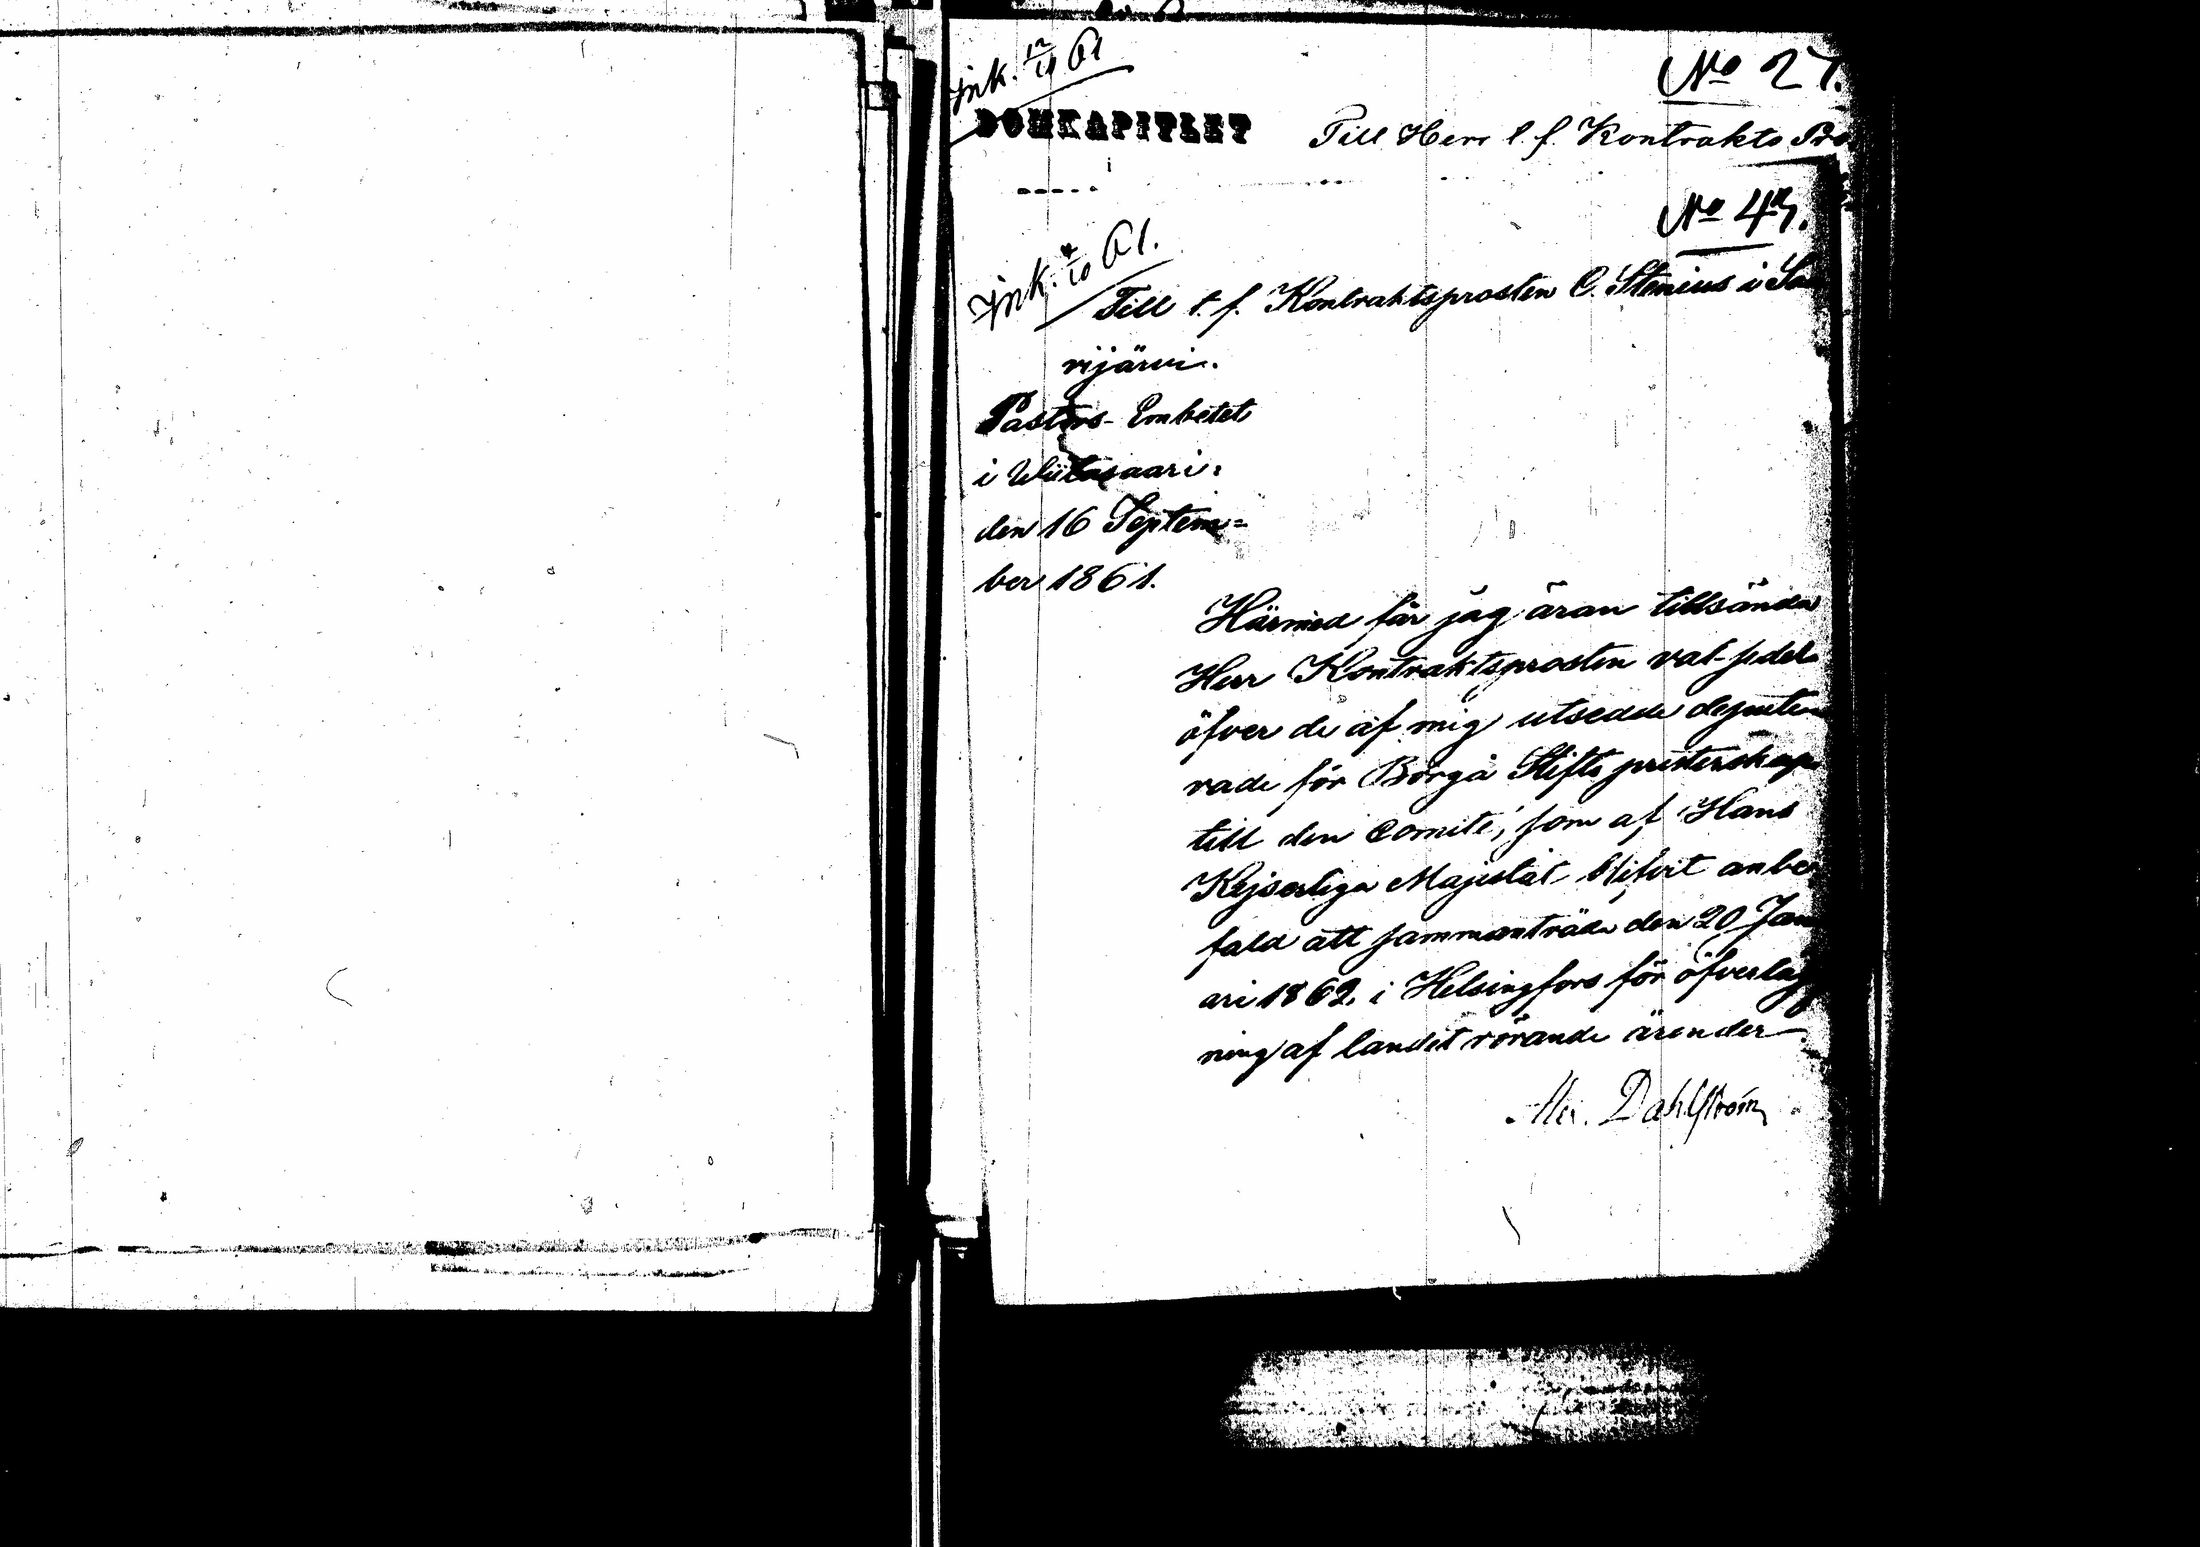 Ink. 12/10 61
No 27.
DOMKAPITLET
Till Herr t. f. Kontrakts Pro
i
No 43.
Ink. 4/10 61.
Till t. f. Kontraktsprosten C. Stenius i Saa
rijärvi.
Pastors-Embetet
i Wiitasaari.
den 16 Septem=
ber 1861.
Härmed får jag äran tillsända
Herr Kontraktsprosten val-sedel
öfver de af mig utsedde depute
rade för Borgå Stifts presterskap
till den Comité, som af Hans
Kejserliga Majestät blifvit anbe
fald att sammanträda den 20 Janu
ari 1862. i Helsingfors för öfverlägg
ning af landet rörande ärender.
Alex. Dahlström